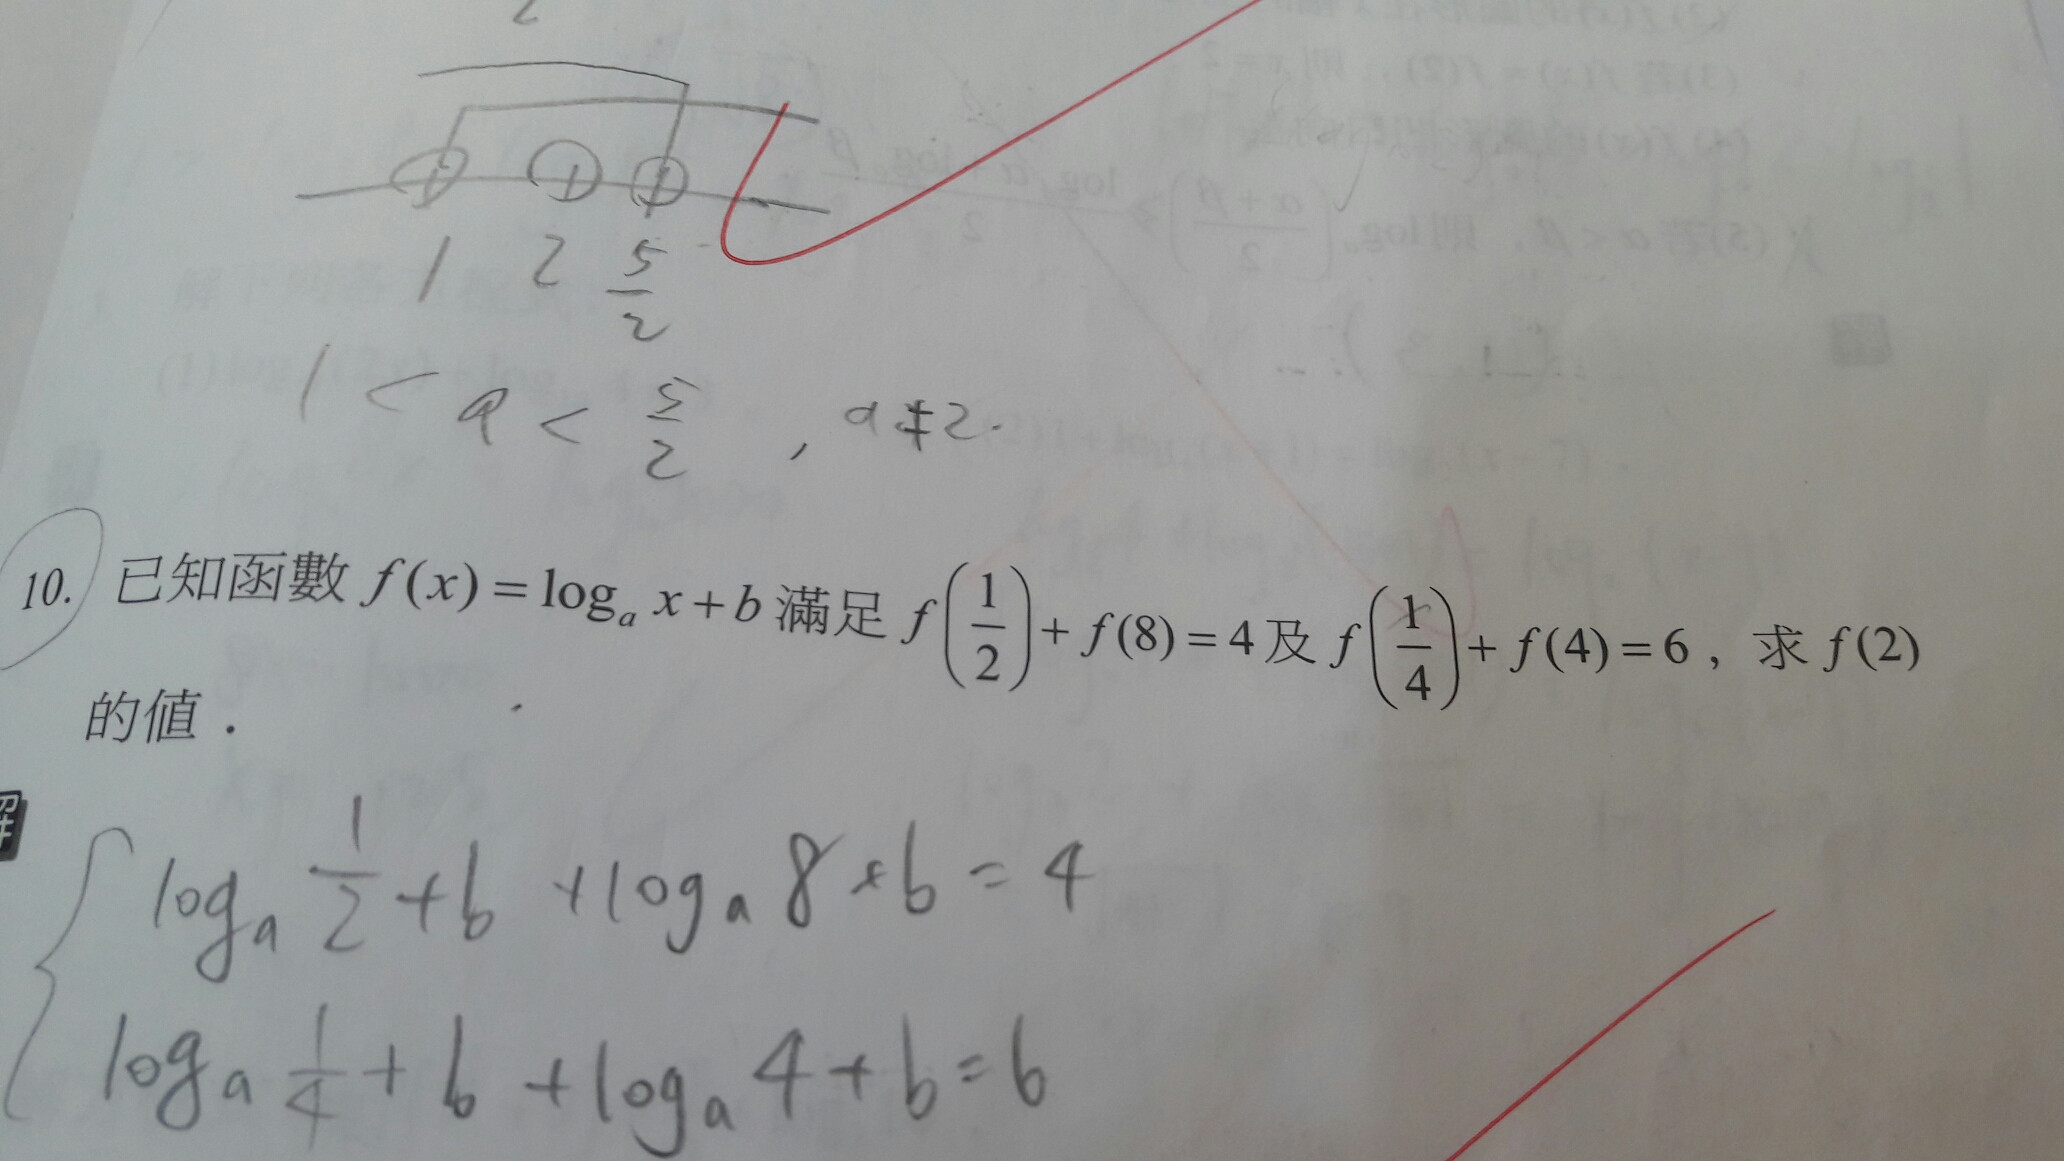 2
1 2 5/2
1 < a < 5/2 , a ≠ 2.
10. 已知函數 f(x) = logₐ x + b 滿足 f(1/2) + f(8) = 4 及 f(1/4) + f(4) = 6，求 f(2)
的值．
解
logₐ 1/2 + b + logₐ 8 + b = 4
logₐ 1/4 + b + logₐ 4 + b = 6